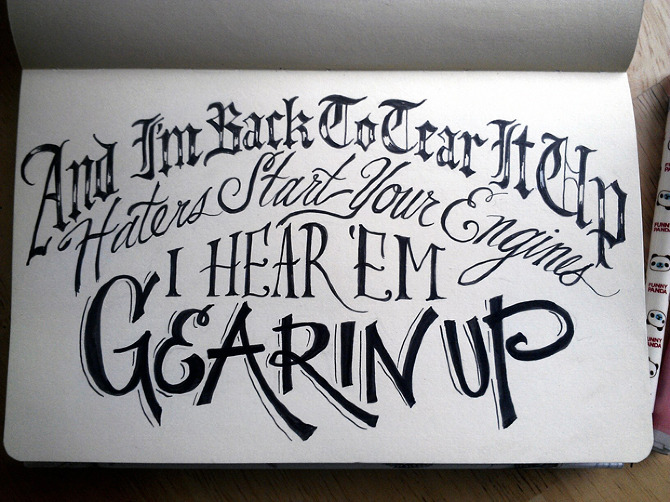 And I'm Back To Tear It Up
Haters Start Your Engines
I HEAR 'EM
GEARIN UP
FUNNY PANDA
FUNNY PANDA
FUNNY PANDA